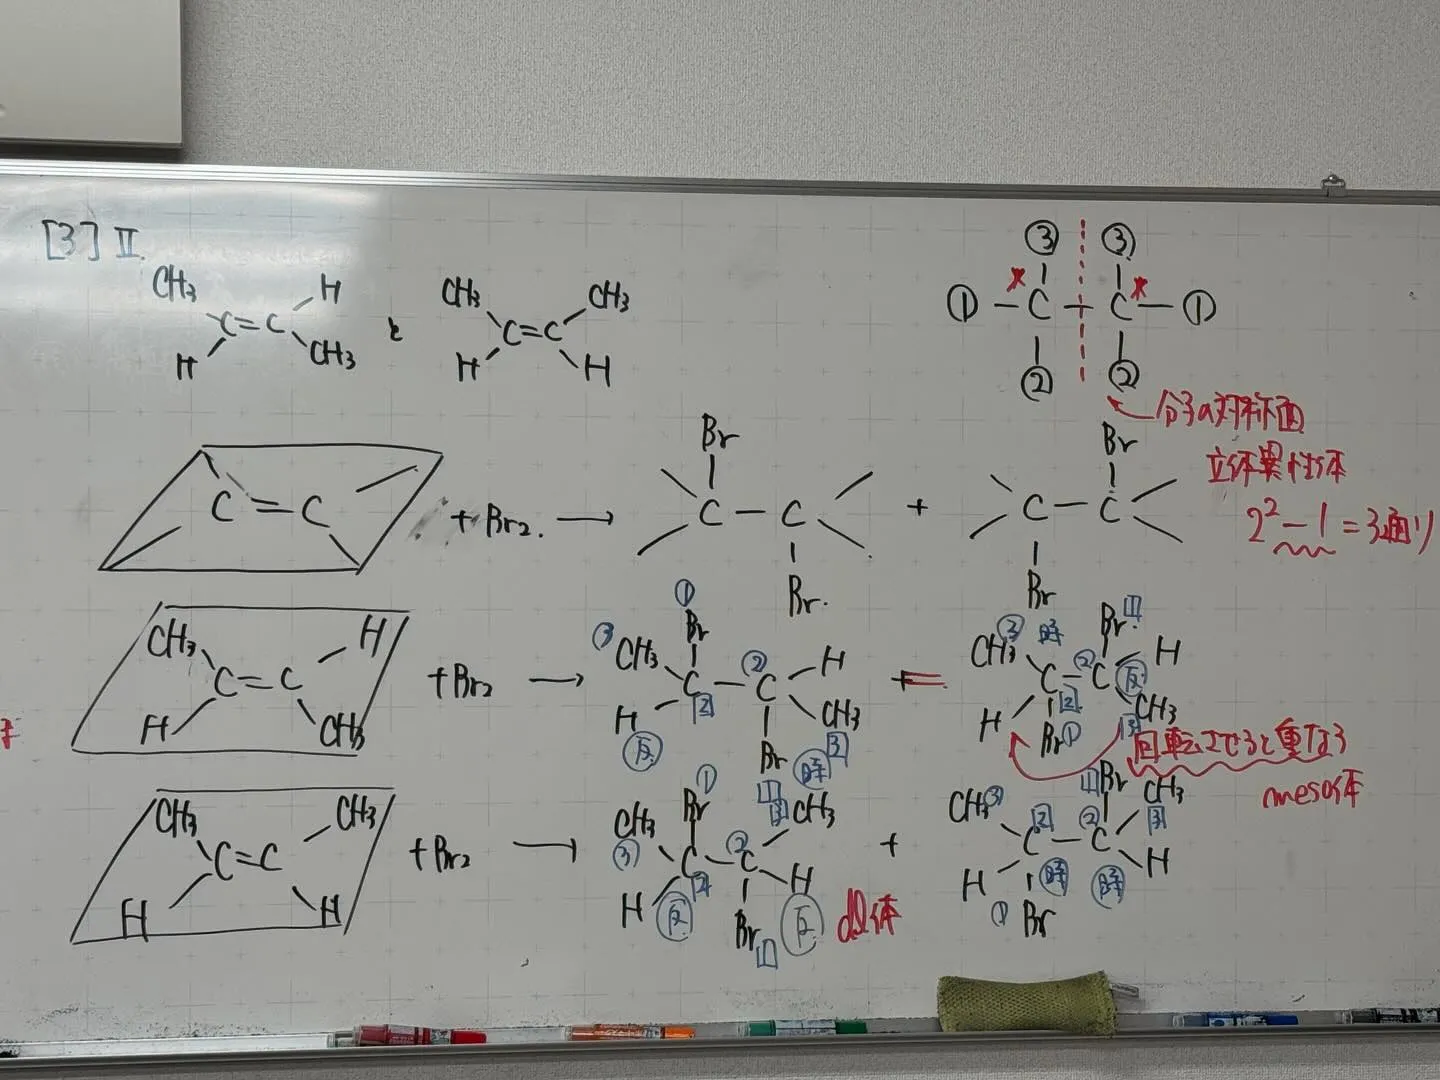 [3] Ⅱ.
CH3 H
C=C
H CH3
と
CH3 CH3
C=C
H H
③ ③
① - C - C - ①
② ②
分子の対称面
立体異性体
2² - 1 = 3通り
C=C + Br2. → Br C - C Br. + Br C - C Br
CH3 H
C=C
H CH3
+Br2 →
① Br
③ CH3 C - C ② H
H [2] CH3 [3]
反 Br 時
[1]
=
③ 時 Br [1]
CH3 C - C ② H
H [2] 反 CH3
Br ① [3]
回転させると重なる
meso体
CH3 CH3
C=C
H H
+Br2 →
① Br [3] CH3
CH3 ③ C - C ②
H [2] H
反 Br [1] 反
dl体
+
[1] Br CH3 [3]
CH3 ③ C [2] - ② C
H 時 時 H
① Br